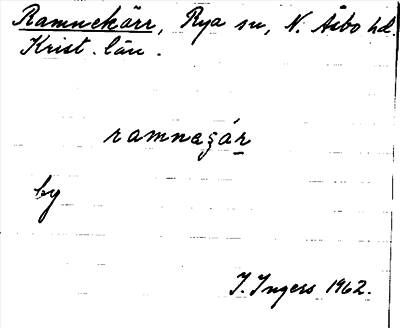 Ramnekärr, Rya sn, N. Åsbo hd.
Krist. län.
ramnaʒár
by
I. Ingers 1962.